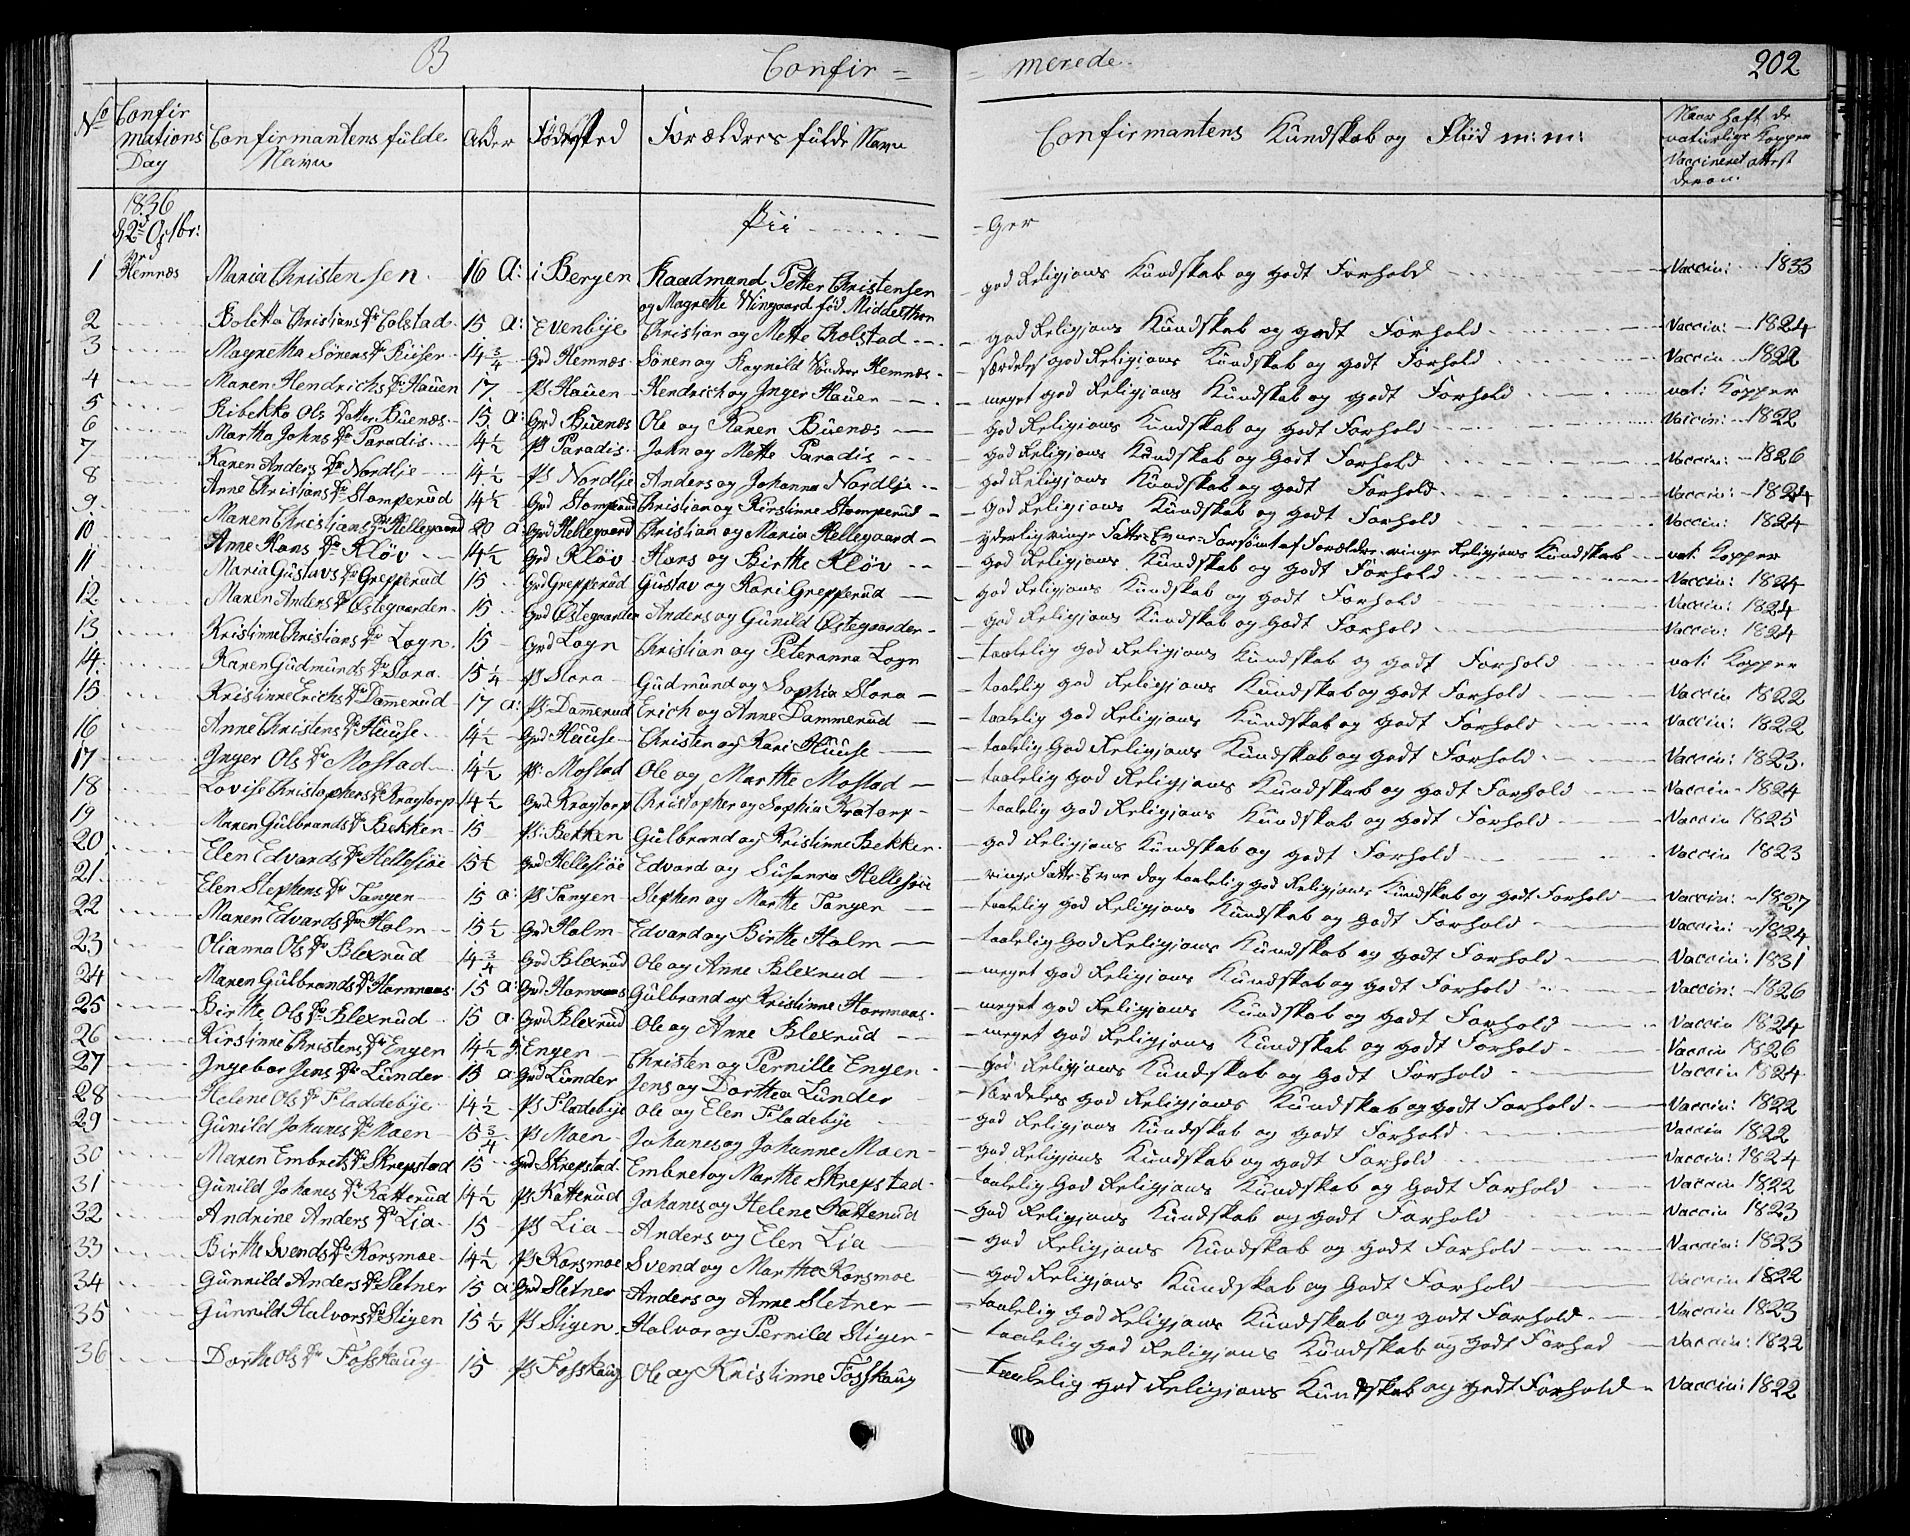 B Confir = = merede. 202
No Confirmations Dag Confirmantens fülde Navn Alder Fødested Forældres fülde Navn Confirmantens Kündskab og Fliid m: m: Naar haft de naturlige Kopper Vaccineret attest derom.
1836
d 2d Octbr: Pii - Ger
1 Hemnæs Maria Christensen 16 A: i Bergen Raadmand Petter Christensen og Magrethe Wingaard fød Middelthon god Religions Kündskab og godt Forhold Vaccin: 1833
2 Boletta Christians Dr Colstad 15 a: Evenbye Christian og Mette Cholstad god Religions Kündskab og godt Forhold Vaccin: 1824
3 Magretha Sørens Dr 14 3/4 Grd Hemnæs Søren og Ragnild Hemnæs særdeles god Religions Kündskab og godt Forhold Vaccin 1822
4 Maren Hendrichs Dr Haüen 17 Ps Haüen Hendrich og Inger Haüen meget god Religions Kündskab og godt Forhold nati Kopper
5 Ribekka Ols Datter Büenæs 15 a: Grd Büenæs Ole og Karen Büenæs god Religions Kündskab og godt Forhold Vaccin: 1822
6 Martha Johns Dr Paradis 14 1/2 Ps Paradis John og Mette Paradis god Religions Kündskab og Godt Forhold Vaccin: 1826
7 Karen Anders Dr Nordlie 14 1/2 Ps Nordlie Anders og Johanna Nordlie god Religions Kündskab og godt Forhold Vaccin: 1824
8 Anne Christians Dr Stomperud 14 1/2 Grd Stomperud Christian og Kirstinne Stomperud god Religions Kündskab og godt Forhold Vaccin: 1824
9 Maren Christians Dr Hellegaard 20 a Grd Hellegaard Christian og Maria Hellegaard yderlig ringe Fatte-Evne Forsømt af Forældre ringe Religions Kündskab nati Kopper
10 Anne Hans Dr Kløv 14 1/2 Grd Kløv Hans og Birthe Kløv god Religions Kündskab og godt Forhold Vaccin: 1824
11 Maria Güstavs Dr Grepperud 15 Grd Grepperüd Güstav og Kari Grepperüd god Religions Kündskab og godt Forhold Vaccin: 1824
12 Maren Anders Dr Østegaarden 15 Grd Østegaarden Anders og Günild Østegaarden god Religions Kündskab og Godt Forhold Vaccin: 1824
13 Kristinne Christians Dr Logn 15 Grd Logn Christian og Peteranna Logn taalelig god Religions Kündskab og godt Forhold nati Kopper
14 Karen Güdmünds Dr Slora 15 1/4 Ps Slora Güdmünd og Sophia Slora taalelig god Religions Kündskab og godt Forhold Vaccin 1822
15 Kristinne Erichs Dr Dammerud 17 a: Ps. Dammerud Erich og Anne Dammerud taalelig god Religions Kündskab og godt Forhold Vaccin: 1822
16 Anne Christens Dr Hüüse 14 1/2 Grd Hüüse Christen og Kari Hüüse taalelig God Religions Kündskab og godt Forhold Vaccin: 1823
17 Inger Ols Dr Mostad 14 1/2 Ps. Mostad Ole og Marthe Mostad taalelig god Religions Kündskab og godt Forhold Vaccin 1824
18 Lovise Christophers Dr Kragtorp 14 1/2 Grd Kragtorp Christopher og Sophia Kratorp taalelig god Religions Kündskab og godt Forhold Vaccin 1825
19 Maren Gülbrands Dr Bekken 15 Ps. Bekken Gülbrand og Kristinne Bekken god Religions Kündskab og godt Forhold Vaccin 1823
20 Elen Edvards Dr Hellesiøe 15 1/2 Grd Hellesiøe Edvard og Susanna Hellesiøe ringe Fatte-Evne dog taalelig god Religions Kündskab og godt Forhold Vaccin: 1827
21 Elen Stephens Dr Tangen 15 a: Ps Tangen Stephen og Marthe Tangen taalelig god Religions Kündskab og godt Forhold Vaccin: 1824
22 Maren Edvards Dr Holm 15 1/2 Grd Holm Edvard og Birthe Holm taalelig God Religions Kündskab og godt Forhold Vaccin: 1831
23 Olianna Ols Dr Blexrud 14 3/4 Grd Blexrud Ole og Anne Blexrud meget god Religions Kündskab og godt Forhold Vaccin: 1826
24 Maren Gülbrands Dr Hornnæs 15 a: Grd Hornnæs Gülbrand og Kristinne Hornnæs meget god Religions Kündskab og godt Forhold Vaccin 1824
25 Birthe Ols Dr Blexrüd 15 a Grd Blexrüd Ole og Anne Blexrüd meget god Religions Kündskab og godt Forhold Vaccin 1826
26 Kirstinne Christens Dr Engen 14 1/2 Engen Christen og Pernille Engen god Religions Kündskab og godt Forhold Vaccin 1824
27 Ingebor Jens Dr Lünder 15 a Grd Lünder Jens og Dorthea Lünder særdeles god Religions Kündskab og godt Forhold Vaccin: 1822
28 Helene Ols Dr Fladdebye 14 1/2 Ps Fladebye Ole og Elen Fladebye god Religions Kündskab og godt Forhold Vaccin 1822
29 Günild Johanes Dr Moen 15 3/4 Ps Moen Johanes og Johanne Moen god Religions Kündskab og godt Forhold Vaccin: 1824
30 Maren Embrets Dr Skrepstad 15 Grd Skrepstad Embret og Marthe Skrepstad taalelig God Religions Kündskab og Godt Forhold Vaccin 1822
31 Günild Johanes Dr Katterüd 14 1/2 Ps Katterüd Johanes og Helene Katterüd god Religions Kündskab og godt Forhold Vaccin 1823
32 Andrine Anders Dr Lia 15 Ps Lia Anders og Elen Lia god Religions Kündskab og godt Forhold Vaccin: 1823
33 Birthe Svends Dr Korsmoe 14 1/2 Ps Korsmoe Svend og Marthe Korsmoe god Religions Kündskab og Godt Forhold Vaccin 1822
34 Günnild Anders Dr Sletner 15 a Grd Sletner Anders og Anne Sletner taalelig god Religions Kündskab og godt Forhold Vaccin 1823
35 Günnild Halvors Dr Stigen 15 1/2 Ps Stigen Halvor og Pernild Stigen taalelig god Religions Kündskab og Godt Forhod Vaccin: 1822
36 Dorthe Ols Dr Fosskaug 15 Ps Fosskaug Ole og Kristinne Fosskaug taalelig god Religions Kündskab og godt Forhold Vaccin: 1822